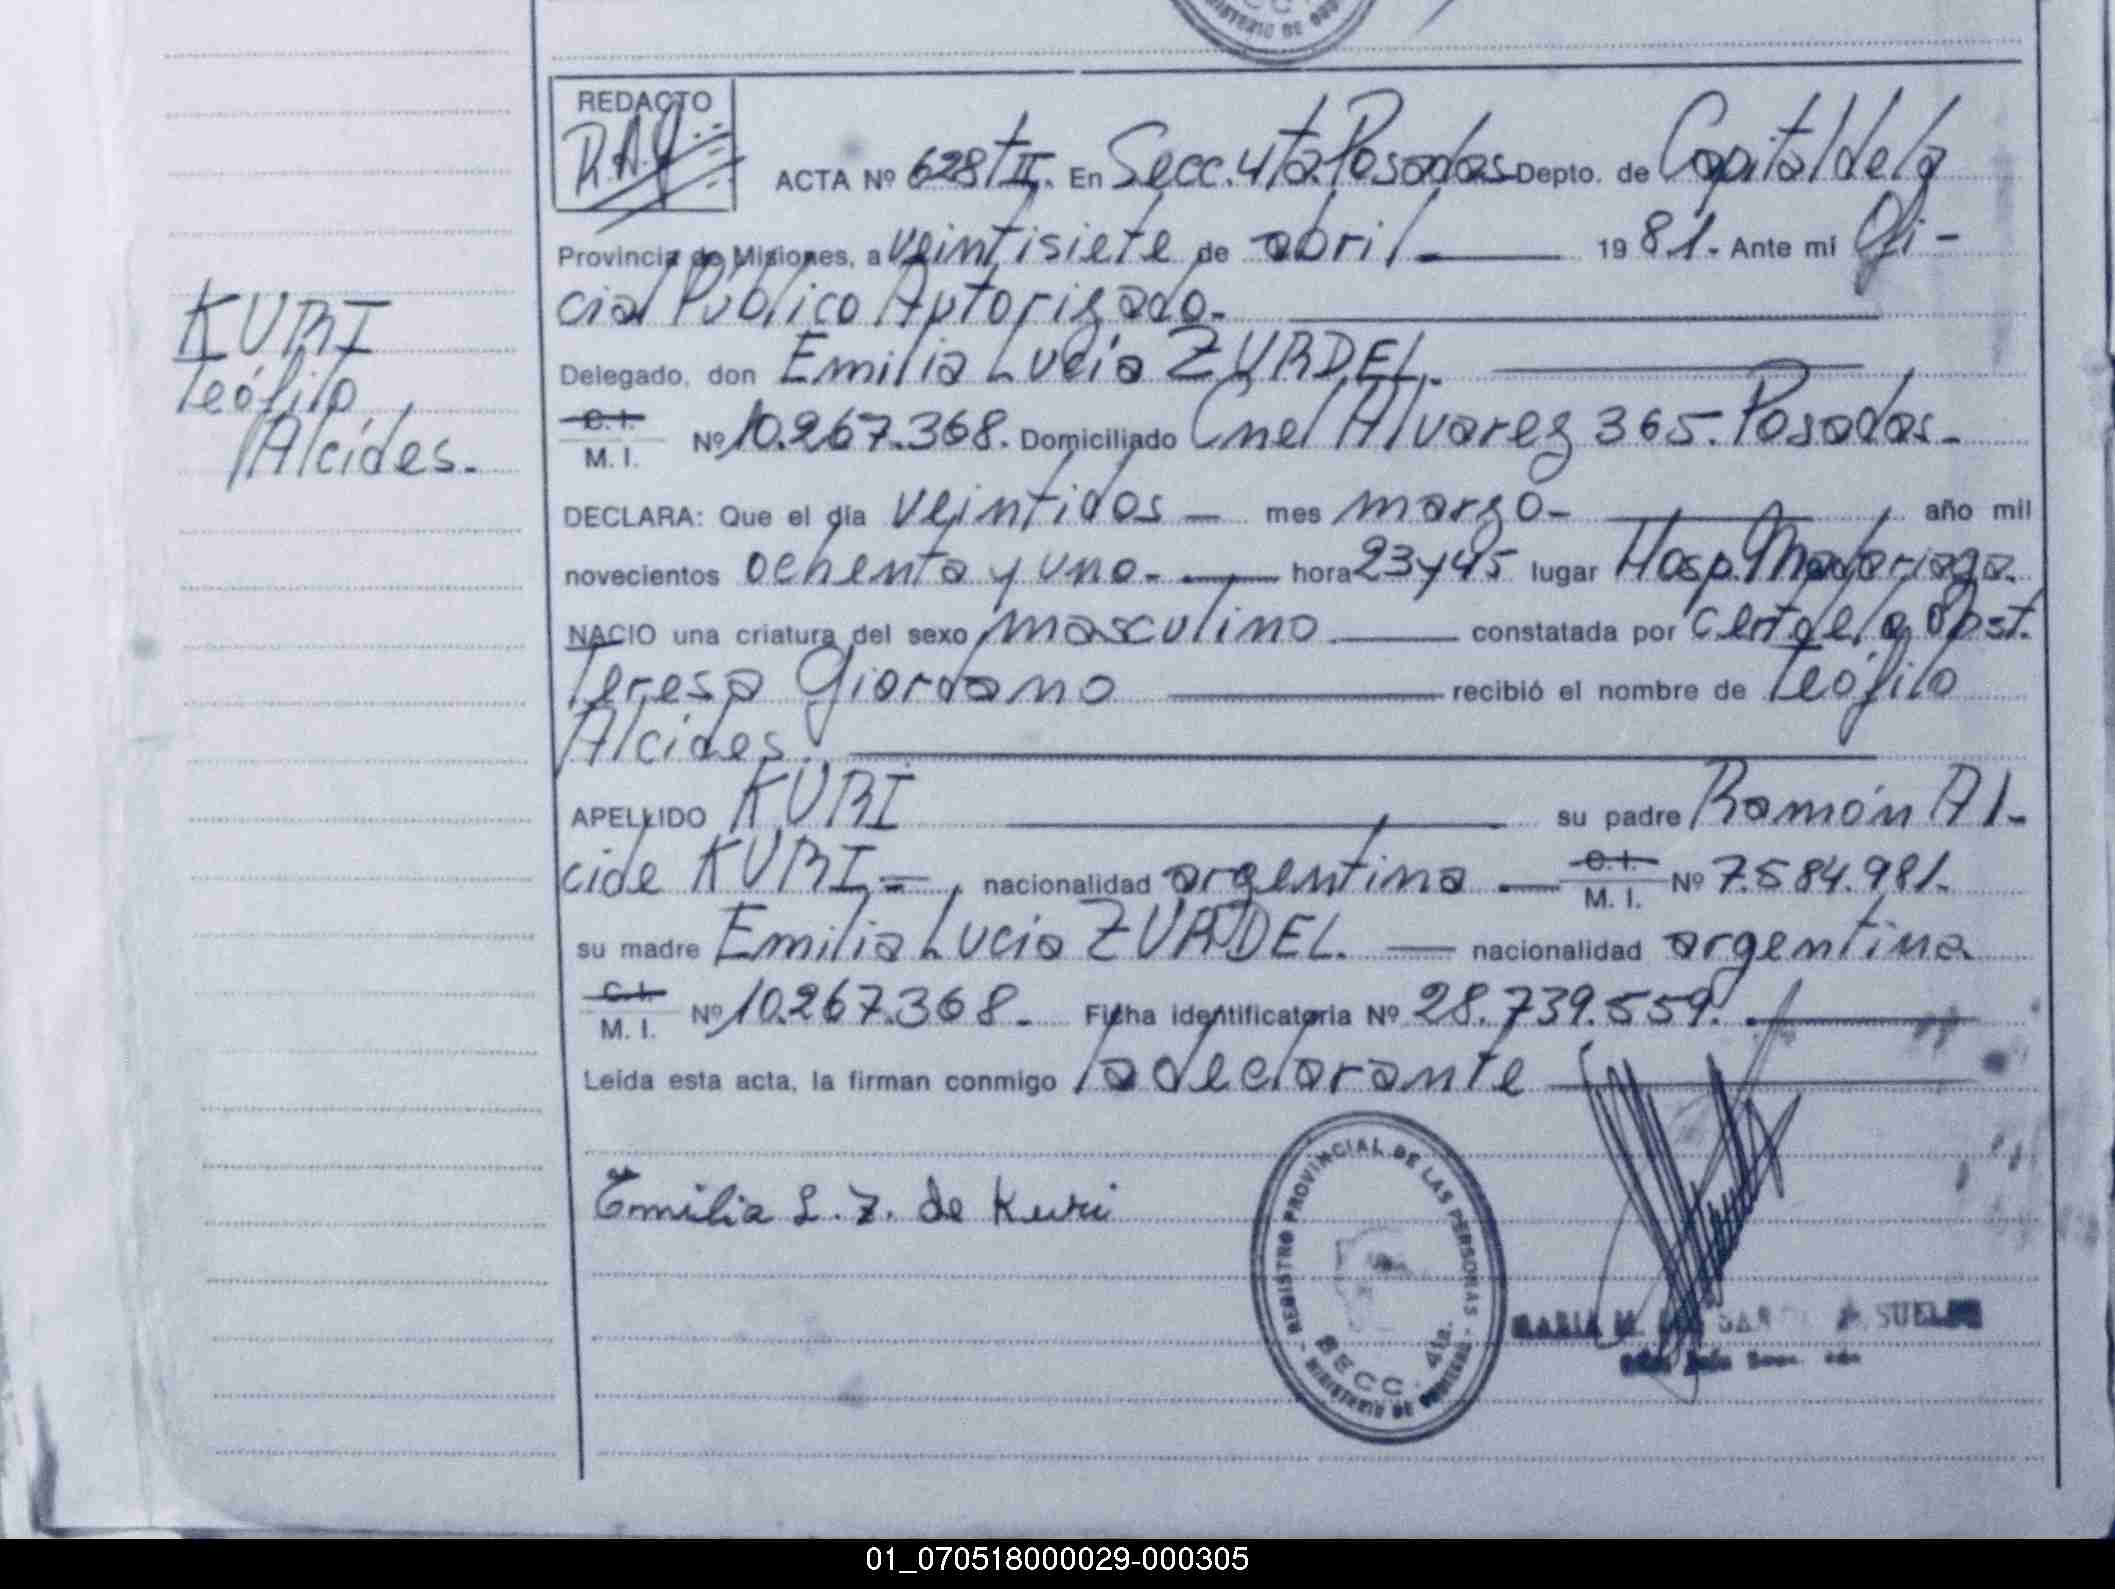 MINISTERIO DE
REDACTO
R.A.G.
ACTA Nº 628 TII. En Secc. 4ta. Posadas Depto. de Capital de la
Provincia de Misiones, a veintisiete de abril 1981.- Ante mí Ofi-
cial Público Autorizado.-
Delegado, don Emilia Lucia ZURDEL.
C. I.
M. I. Nº 10.267.368. Domiciliado Cnel Alvarez 365. Posadas.-
DECLARA: Que el día veintidos - mes marzo- año mil
novecientos ochenta y uno.- hora 23y45 lugar Hosp. Madariaga.
NACIO una criatura del sexo masculino constatada por cert de la Obst.
Teresa Giordano recibió el nombre de Teófilo
Alcides.
APELLIDO KURI su padre Ramón Al-
cide KURI = nacionalidad argentina C. I.
M. I. Nº 7.584.981.
su madre Emilia Lucia ZURDEL. nacionalidad argentina
C. I.
M. I. Nº 10.267.368.- Ficha identificatoria Nº 28.739.559.
Leída esta acta, la firman conmigo la declarante
Emilia L. Z. de Kuri
REGISTRO PROVINCIAL DE LAS PERSONAS
SECC. 4ta.
MINISTERIO DE GOBIERNO
MARIA
KURI
Teófilo
Alcides.-
01_070518000029-000305